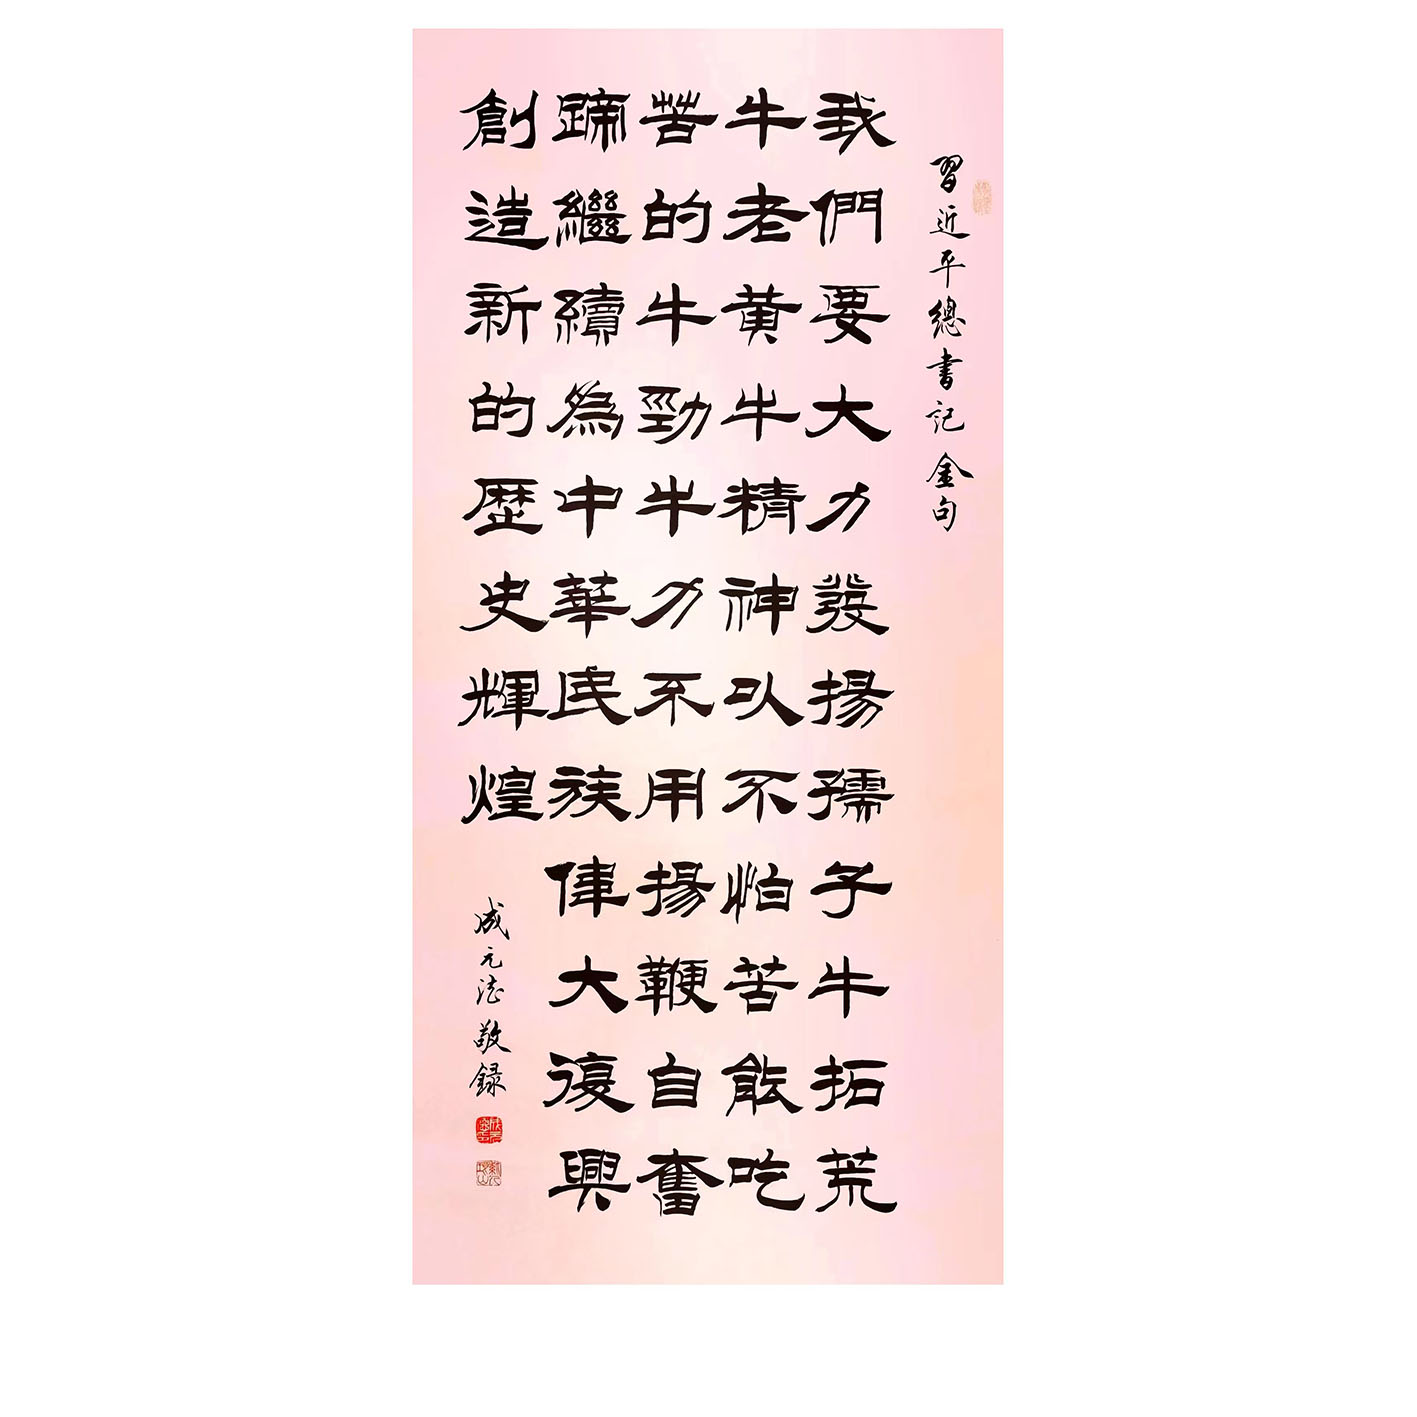 習近平總書記金句
我們要大力發揚孺子牛拓荒
牛老黄牛精神以不怕苦能吃
苦的牛勁牛力不用揚鞭自奮
蹄繼續為中華民族偉大復興
創造新的歷史輝煌
成元法敬録